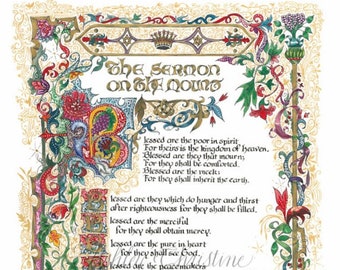 The Sermon
on the Mount
Blessed are the poor in spirit
For theirs is the kingdom of heaven.
Blessed are they that mourn:
For they shall be comforted.
Blessed are the meek:
For they shall inherit the earth.
Blessed are they which do hunger and thirst
after righteousness for they shall be filled.
Blessed are the merciful
for they shall obtain mercy.
Blessed are the pure in heart
for they shall see God.
Blessed are the peacemakers